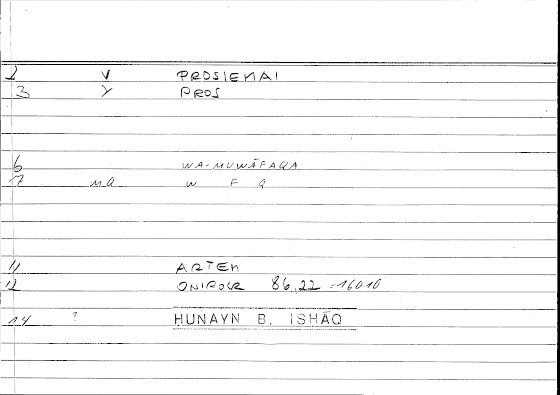 2 V PROSIENAI
3 Y PROS
6 WA-MUWĀFAQA
7 MQ W F Q
11 ARTEM
12 ONIROCR 86,22 -16010
14 ? HUNAYN B. ISHĀQ